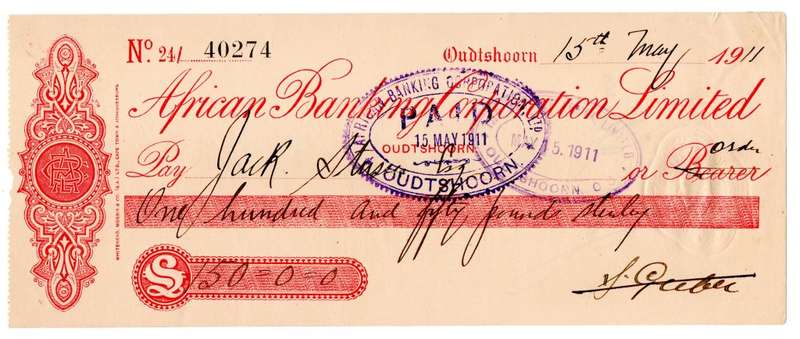 No. 24/ 40274
Oudtshoorn 15th May 1911
African Banking Corporation Limited
AFRICAN BANKING CORPORATION LTD
PAID
15 MAY 1911
OUDTSHOORN
OUDTSHOORN.
LIMITED
MAY 15.1911
OUDTSHOORN.
Pay Jack Esq or Bearer Order
One hundred and fifty pounds sterling
£ 150=0=0